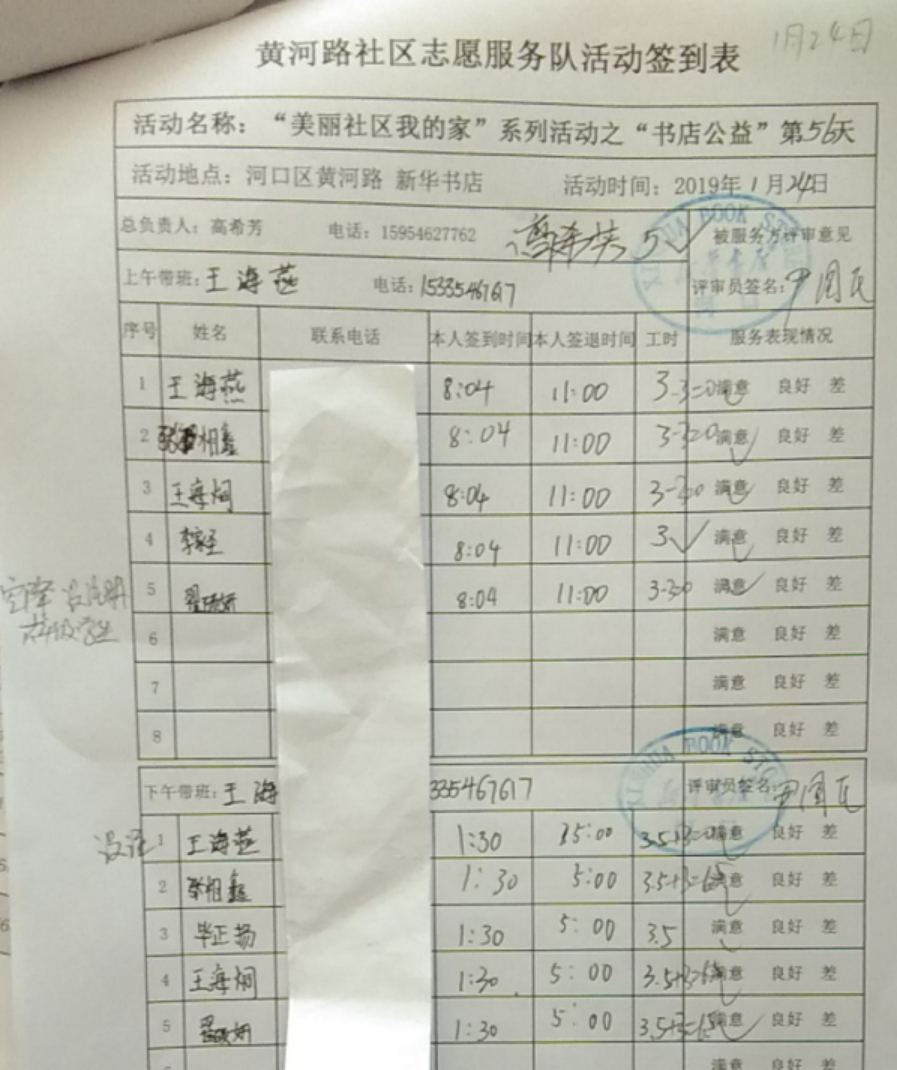 1月24日
黄河路社区志愿服务队活动签到表
活动名称：“美丽社区我的家”系列活动之“书店公益”第56天
活动地点：河口区黄河路 新华书店 活动时间：2019年1月24日
总负责人：高希芳 电话：15954627762 高希芳 5 被服务方评审意见
XINHUA BOOK STORE
上午带班：王海燕 电话：15335467617 评审员签名：尹国民
序号 姓名 联系电话 本人签到时间 本人签退时间 工时 服务表现情况
1 王海燕 8:04 11:00 3-3=0 满意 良好 差
2 张相鑫 8:04 11:00 3-3=0 满意 良好 差
3 王海炯 8:04 11:00 3-3=0 满意 良好 差
4 8:04 11:00 3 满意 良好 差
5 8:04 11:00 3-3=0 满意 良好 差
6 满意 良好 差
7 满意 良好 差
8 满意 良好 差
XINHUA BOOK STO
下午带班：王海 335467617 评审员签名：尹国民
没译
1 王海燕 1:30 5:00 满意 良好 差
2 张相鑫 1:30 5:00 3.5+3=6.5 满意 良好 差
3 毕正扬 1:30 5:00 3.5 满意 良好 差
4 王海炯 1:30 5:00 3.5+3=6.5 满意 良好 差
5 1:30 5:00 3.5+3=6.5 满意 良好 差
满意 良好 差